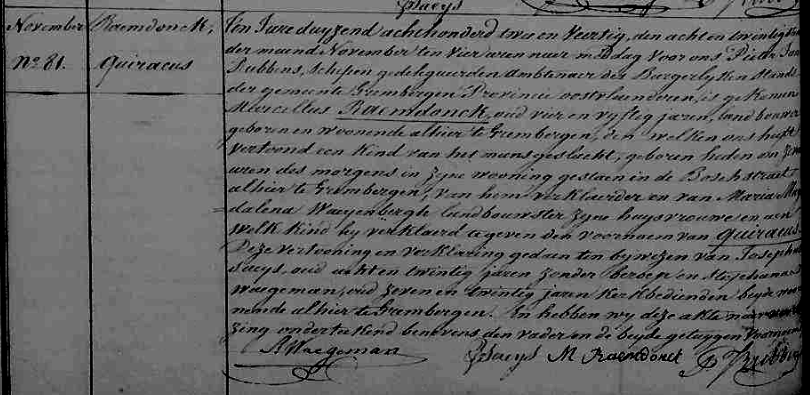 Psaeys
November
Raemdonck,
No 81.
Quiraeus
Ten Jare duyzend achthonderd twee en veertig, den acht en twintig
der maand November ten vier uren naer middag voor ons, Pieter
Rubbens, Schepen gedelegueerden Ambtenaer des Burgerlyken Stands
der gemeente Grembergen Provincie oostvlaenderen, is gekomen
Marcellus Raemdonck, oud vier en vyftig jaren, landbouwer
geboren en woonende alhier te Grembergen, den welken ons heeft
vertoond een kind van het mansgeslacht, geboren heden om
uren des morgens in zyne wooning gestaen in de Boschstraet
alhier te Grembergen, van hem verklaerder en van Maria Mag
dalena Waeyenbergh landbouwster zyne huysvrouwe en aen
welk kind hy verklaerd te geven den voornaem van Quiraeus
Deze vertooning en verklaring gedaen ten bywezen van Joseph
Saeys, oud acht en twintig jaren zonder beroep en Stephanus
Waegeman, oud zeven en twintig jaren kerkbedienden beyde woo
nende alhier te Grembergen. En hebben wy deze akte naer voor
zing onderteekend benevens den vader en de beyde getuygen voornoemd
Waegeman
Psaeys
M Raemdonck